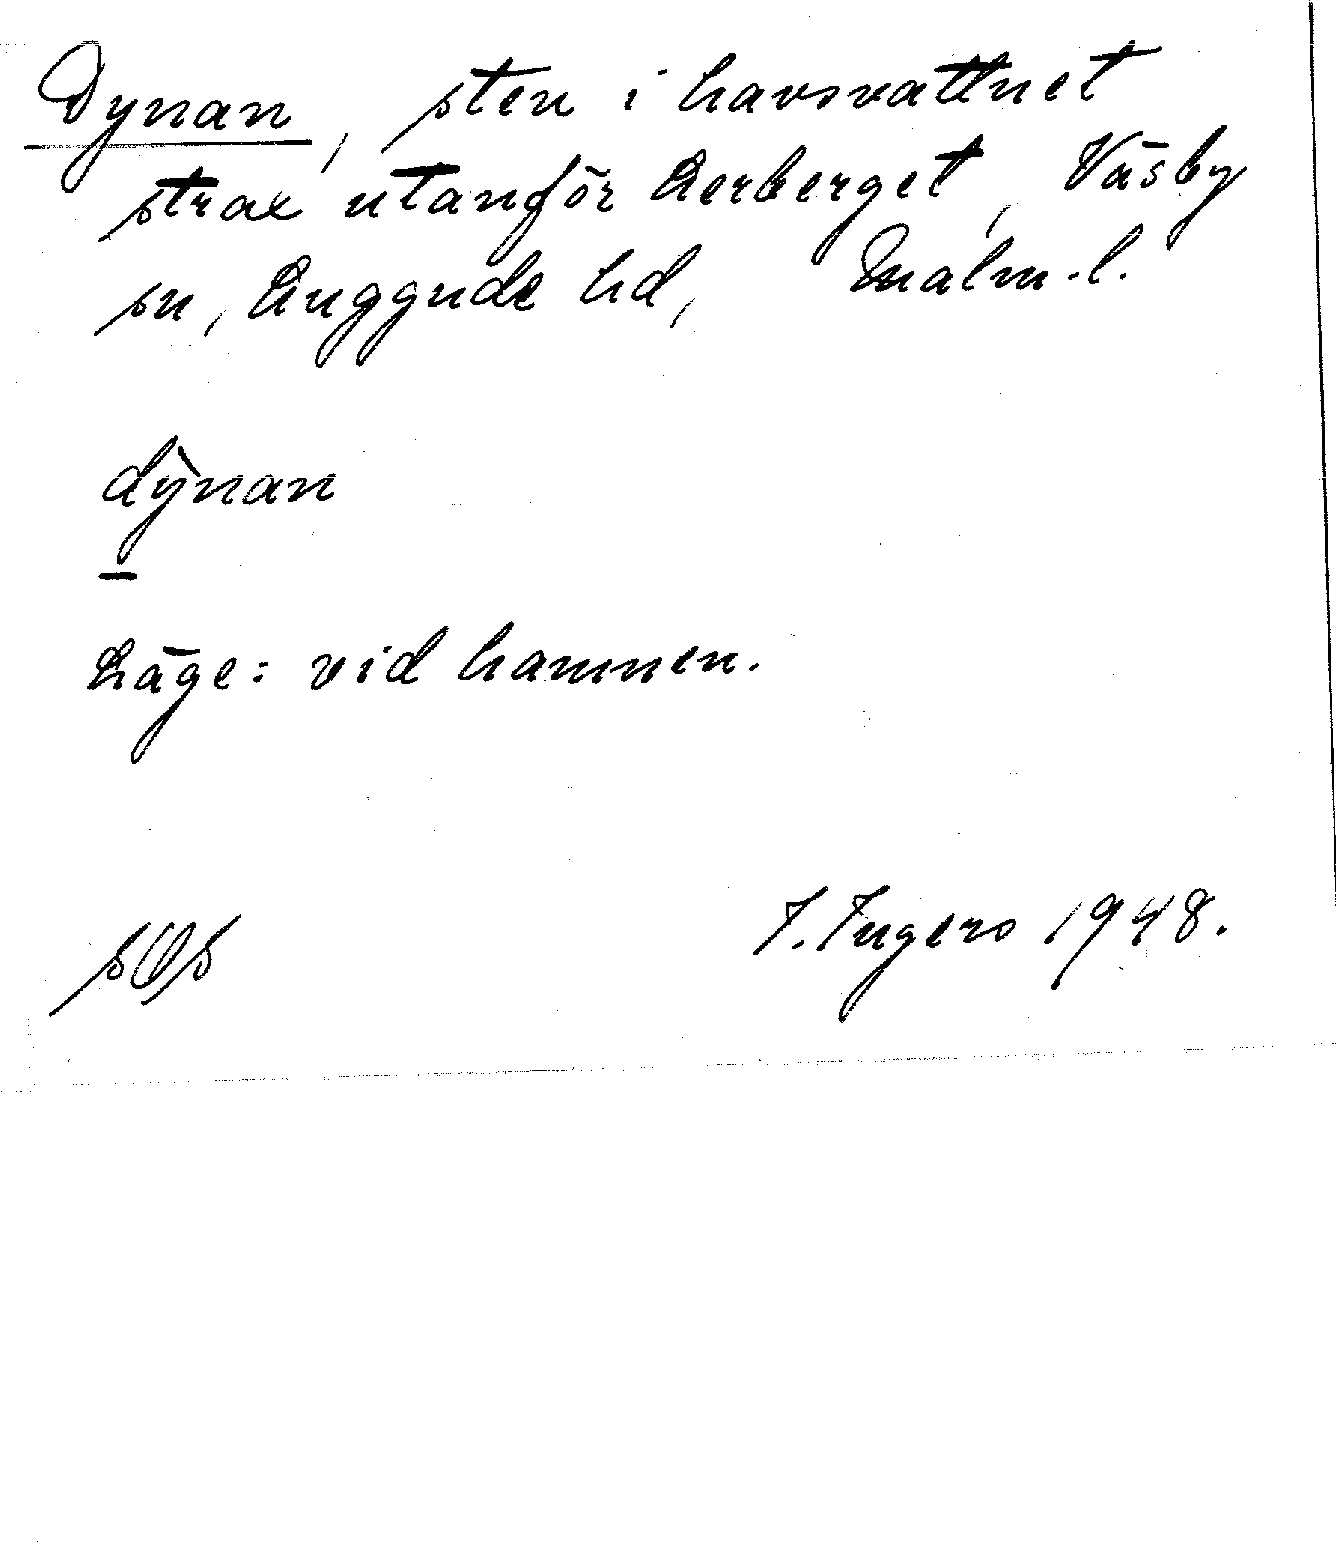 Dynan, sten i havsvattnet
strax utanför Lerberget, Väsby
sn, Luggude hd, Malm.l.
dy̖nan
Läge: vid hamnen.
I. Ingers 1948.